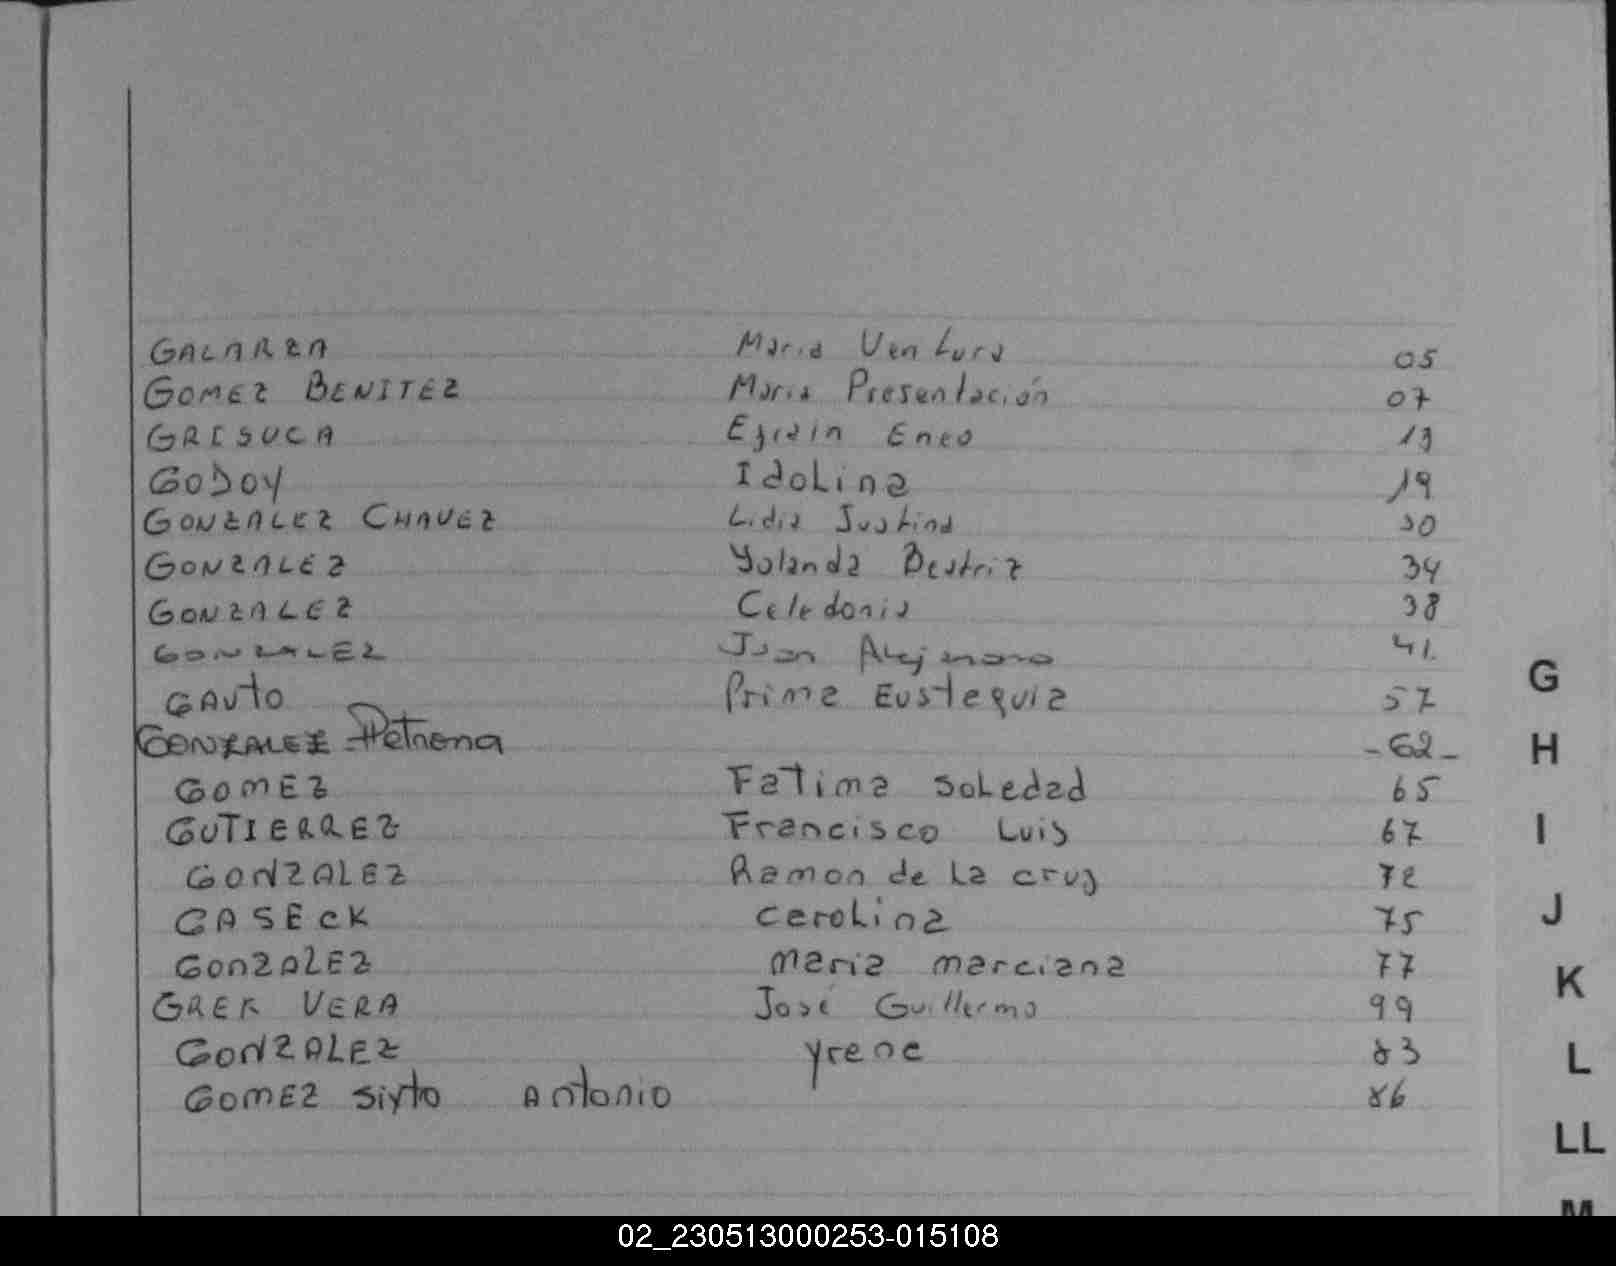 GALARZA Maria Ventura 05
GOMEZ BENITEZ Maria Presentación 07
GRISUCA Efrain Eneo 13
GODOY Idolina 19
GONZALEZ CHAVEZ Lidia Justina 30
GONZALEZ Yolanda Beatriz 34
GONZALEZ Celedonia 38
GONZALEZ Juan Alejandro 41.
GAUTO Prima Eustequia 57
GONZALEZ Petrona -62-
GOMEZ Fatima Soledad 65
GUTIERREZ Francisco Luis 67
GONZALEZ Ramon de La cruz 72
GASECK Carolina 75
GONZALEZ maria marciana 77
GREK VERA José Guillermo 99
GONZALEZ yrene 83
GOMEZ Sixto Antonio 86
G
H
I
J
K
L
LL
M
02_230513000253-015108